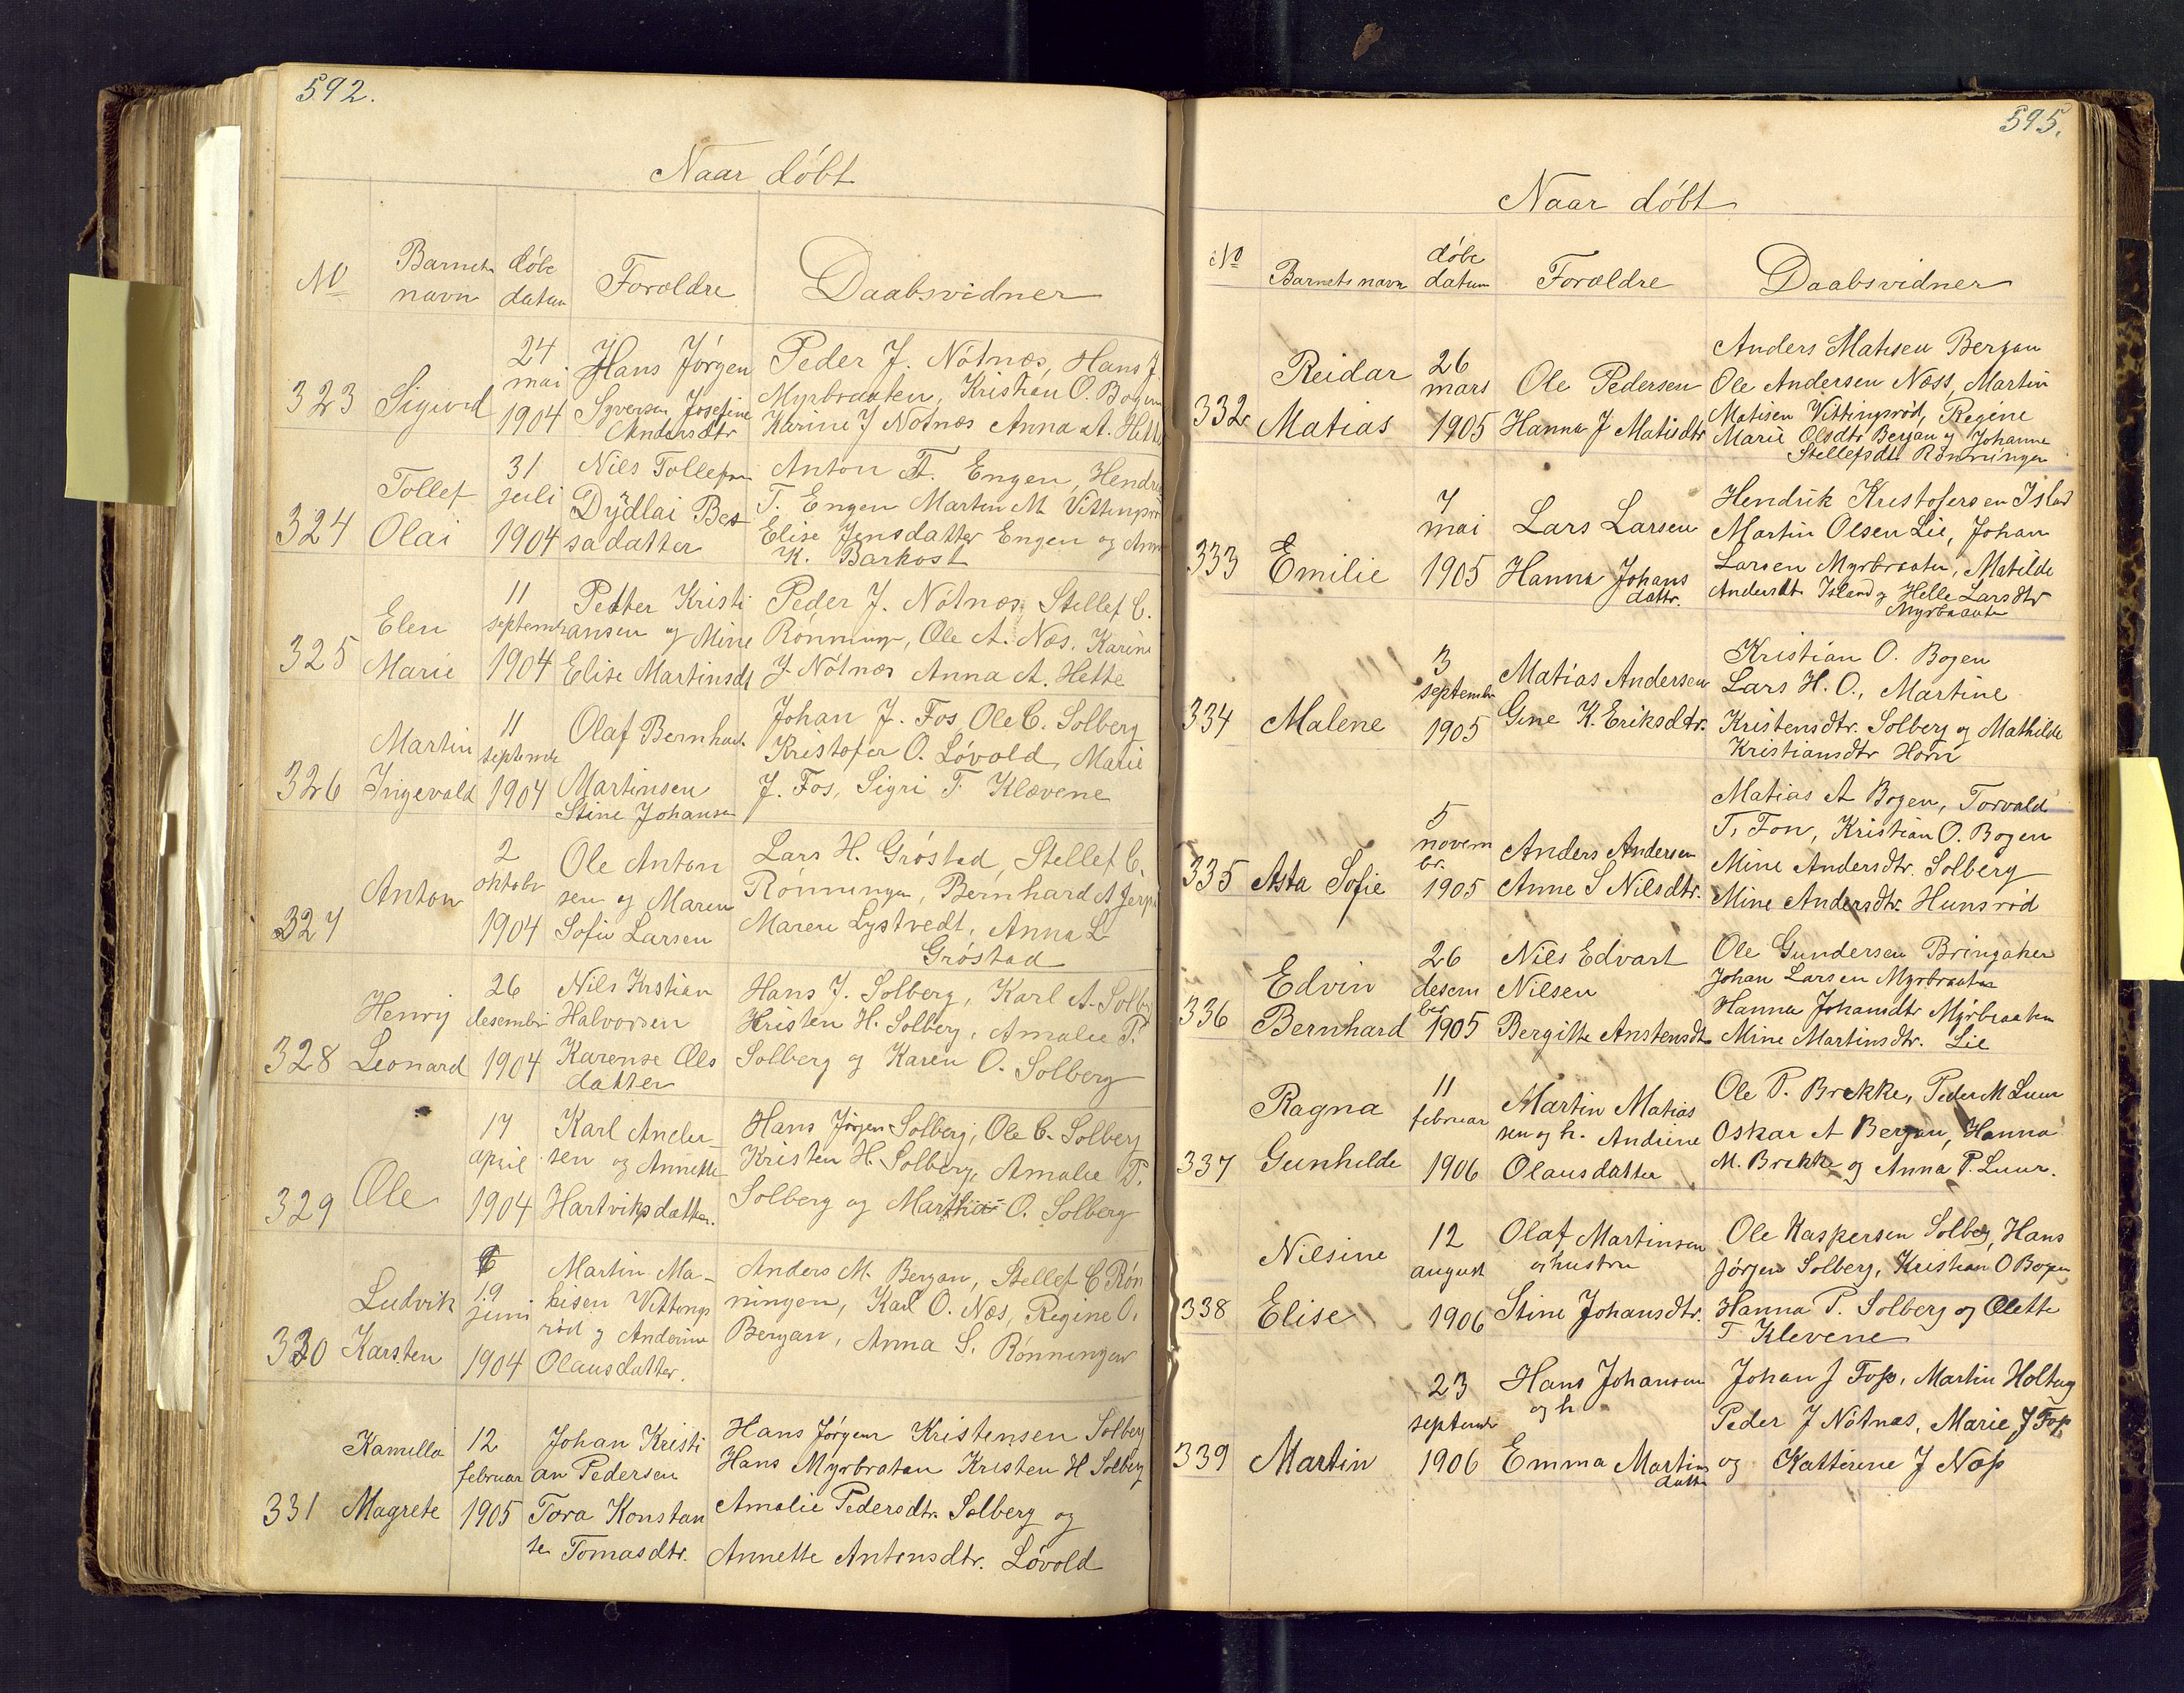 592.
Naar døbt
No
Barnets navn
døbe datum
Foroldre
Daabsvidner
323
Sigurd
24 mai 1904
Hans Jørgen
Syversen Josefine
Andersdtr
Peder J. Nótnæs, Hans J
Myrbraaten, Kristian O. Bogen
Karine J Nótnæs Anna A. Hette
324
Tollef
Olai
31 juli 1904
Nils Tollefsen
Dydlai Bes
sadatter
Anton T. Engen, Hendrik
T. Engen Martin M Vittingsrö
Elise Jensdatter Engen og Anna
K. Barkost
325
Elen
Marie
11 septembr 1904
Petter Kristi
ansen og Mine
Elise Martinsdt
Peder J. Nótnæs. Stellef C.
Rónninge, Ole A. Næs. Karine
J. Nótnæs Anna A. Hette
326
Martin
Ingevald
11 septembr 1904
Olaf Bernhard
Martinsen
Stine Johansen
Johan J. Fos, Ole C. Solberg
Kristofer O. Lóvold, Marie
J. Fos, Sigri T. Klævene
327
Anton
2 oktobr 1904
Ole Anton
sen og Maren
Sofie Larsen
Lars H. Gróstad, Stellef C.
Rónningen, Bernhard A Jerp
Maren Lystvedt, Anna L
Gróstad
328
Henrij
Leonard
26 desembr 1904
Nils Krstian
Halvorsen
Karense Ols
datter
Hans J. Solberg, Karl A. Solbe
Kristen H. Solberg, Amalie P.
Solberg og Karen O. Solberg
329
Ole
17 april 1904
Karl Ander
sen og Annette
Hartviksdatter.
Hans Jørgen Solberg, Ole C. Solberg
Kristen H. Solberg, Amalie P.
Solberg og Marthia O. Solberg
330
Ludvik
Karsten
19 juni 1904
Martin Ma-
tisen Vittings
rød og Anderine
Olausdatter.
Anders M. Berjan, Stellef C Rón
ningen, Karl O. Næs, Regine O.
Berjan, Anna S. Rónningen
331
Kamilla
Magrete
12 februar 1905
Johan Kristi
an Pedersen
Tora Konstan
se Tomasdtr.
Hans Jórgen Kristensen Solberg
Hans Myrbraten Kristen H Solberg
Amalie Pedersdtr. Solberg og
Annette Antonsdtr. Lóvold
595.
Naar døbt
No
Barnets navn
døbe datum
Forældre
Daabsvidner
332
Reidar
Matias
26 mars 1905
Ole Pedersen
Hanna J Matisdtr
Anders Matisen Berjan
Ole Andersen Næss, Martin
Matisen Vittingsrød, Regine
Marie Olsdtr Berjan og Johanne
Stellefsdt. Rónningen
333
Emilie
7 mai 1905
Lars Larsen
Hanna Johans
dattr.
Hendrik Kristofersen Island
Martin Olsen Lie, Johan
Larsen Myrbraaten, Matilde
Andersdt Island og Helle Larsdtr
Myrbraaten
334
Malene
3 septembr 1905
Matias Andersen
Gine K. Eriksdtr.
Kristian O. Bogen
Lars H. O., Martine
Kristensdtr. Solberg og Mathilde
Kristiansdtr Horn
335
Asta Sofie
5 novem br. 1905
Anders Andersen
Anne S Nilsdtr.
Matias A Bogen, Torvald
T. Fon, Kristian O. Bogen
Mine Andersdtr. Solberg
Mine Andersdtr. Hunsrød
336
Edvin
Bernhard
26 desem ber 1905
Nils Edvart
Nilsen
Bergitte Anstensdt
Ole Gundersen Bringaker
Johan Larsen Myrbraaten
Hanna Johansdtr Myrbraaten
Mine Martinsdtr. Lie
337
Ragna
Gunhilde
11 februar 1906
Martin Matias
sen og h. Andrine
Olausdatter
Ole P. Brekke, Peder M Luur
Oskar A Berjan, Hanna
M. Brekke og Anna P. Luur.
338
Nilsine
Elise
12 august 1906
Olaf Martinsen
oghustru
Stine Johansdtr.
Ole Kaspersen Solberg, Hans
Jørgen Solberg, Kristian O Bogen
Hanna P. Solberg og Olette
T Klevene
339
Martin
23 septembr 1906
Hans Johansen
og h
Emma Martins
datter
Johan J Foss, Martin Holtug
Peder J Nótnæs, Marie J Foss
og Kattirine J Næss